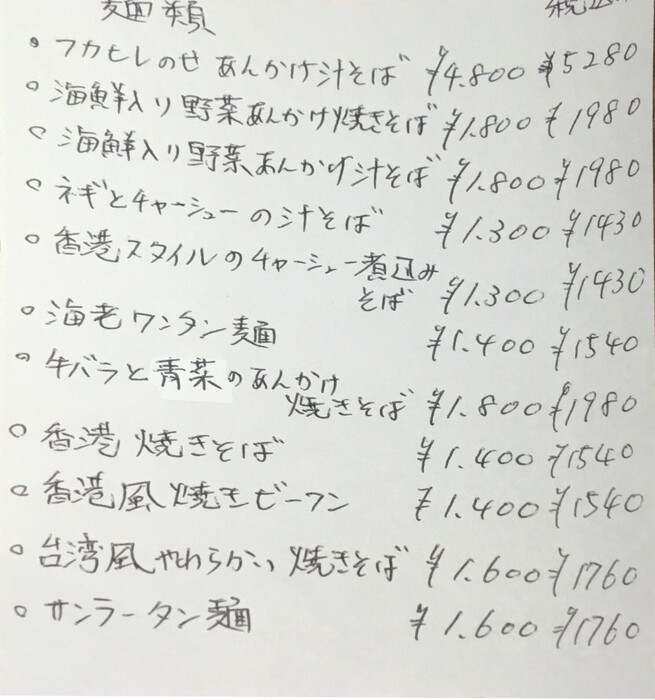 麺類 税込
・フカヒレのせ あんかけ汁そば ¥4.800 ¥5280
○海鮮入り野菜あんかけ焼きそば ¥1.800 ¥1980
○海鮮入り野菜あんかけ汁そば ¥1.800 ¥1980
○ネギとチャーシューの汁そば ¥1.300 ¥1430
○香港スタイルのチャーシュー煮込み
そば ¥1.300 ¥1430
○海老ワンタン麺 ¥1.400 ¥1540
○牛バラと青菜のあんかけ
焼きそば ¥1.800 ¥1980
○香港焼きそば ¥1.400 ¥1540
○香港風焼きビーフン ¥1.400 ¥1540
○台湾風やわらかい焼きそば ¥1.600 ¥1760
○サンラータン麺 ¥1.600 ¥1760